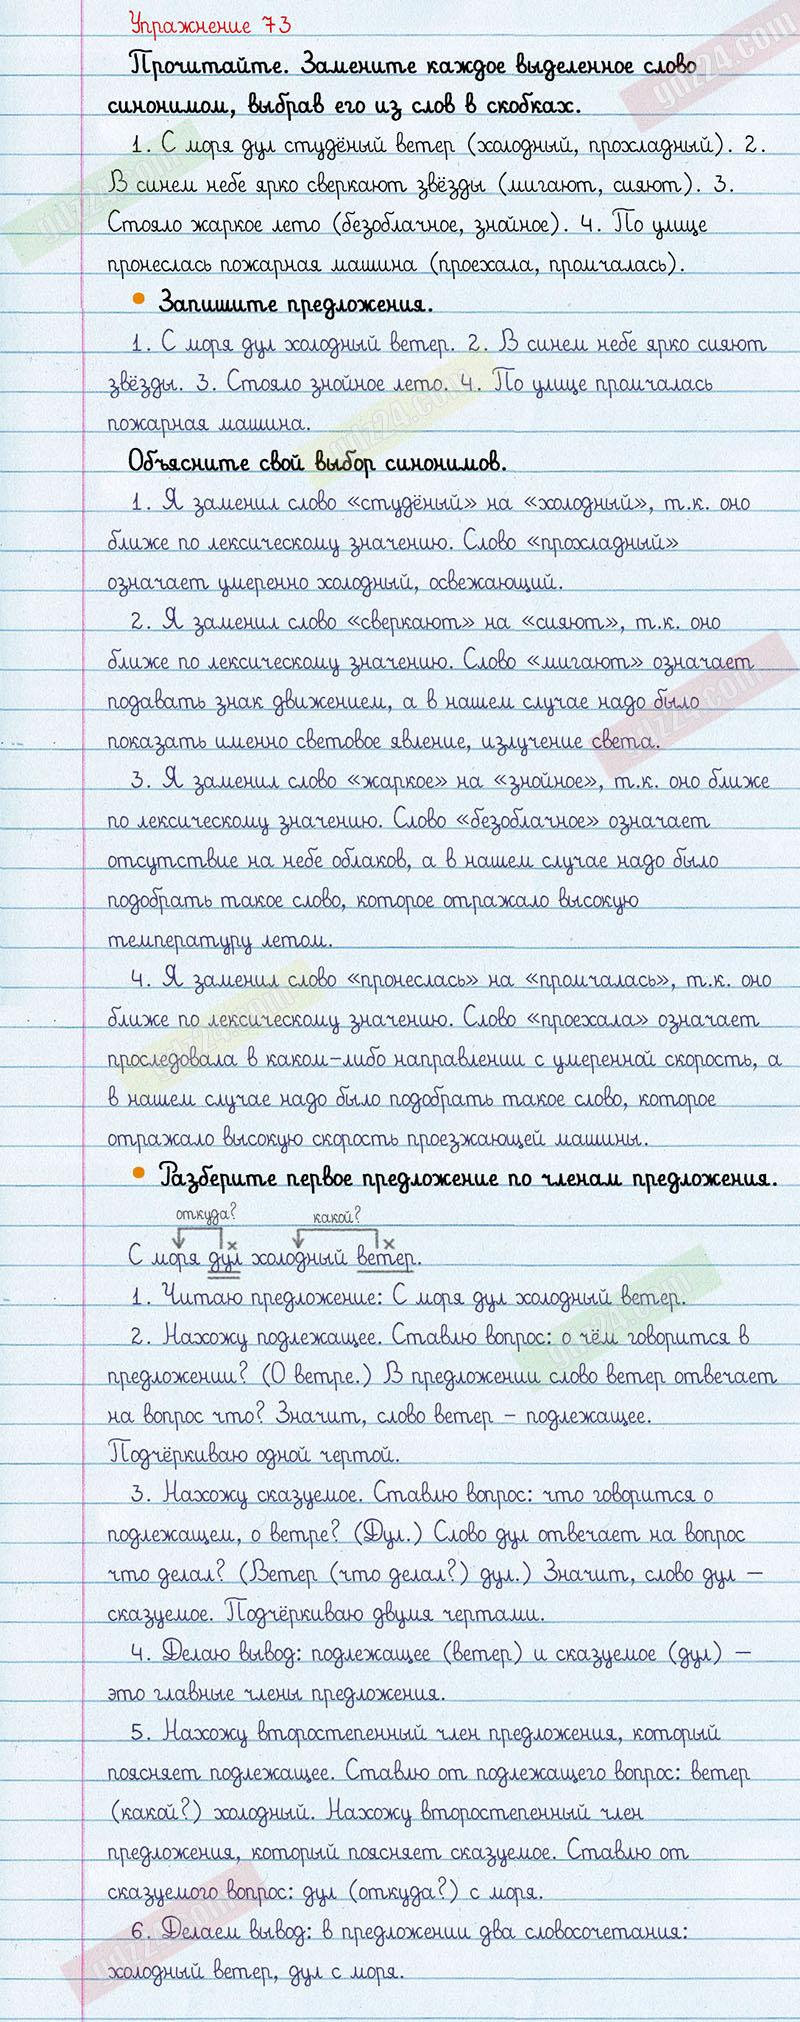 Упражнение 73
Прочитайте. Замените каждое выделенное слово
синонимом, выбрав его из слов в скобках.
1. С моря дул студёный ветер (холодный, прохладный). 2.
В синем небе ярко сверкают звёзды (мигают, сияют). 3.
Стояло жаркое лето (безоблачное, знойное). 4. По улице
пронеслась пожарная машина (проехала, промчалась).
• Запишите предложения.
1. С моря дул холодный ветер. 2. В синем небе ярко сияют
звёзды. 3. Стояло знойное лето. 4. По улице промчалась
пожарная машина.
Объясните свой выбор синонимов.
1. Я заменил слово «студёный» на «холодный», т.к. оно
ближе по лексическому значению. Слово «прохладный»
означает умеренно холодный, освежающий.
2. Я заменил слово «сверкают» на «сияют», т.к. оно
ближе по лексическому значению. Слово «мигают» означает
подавать знак движением, а в нашем случае надо было
показать именно световое явление, излучение света.
3. Я заменил слово «жаркое» на «знойное», т.к. оно ближе
по лексическому значению. Слово «безоблачное» означает
отсутствие на небе облаков, а в нашем случае надо было
подобрать такое слово, которое отражало высокую
температуру летом.
4. Я заменил слово «пронеслась» на «промчалась», т.к. оно
ближе по лексическому значению. Слово «проехала» означает
проследовала в каком-либо направлении с умеренной скорость, а
в нашем случае надо было подобрать такое слово, которое
отражало высокую скорость проезжающей машины.
• Разберите первое предложение по членам предложения.
откуда? какой?
х х
С моря дул холодный ветер.
1. Читаю предложение: С моря дул холодный ветер.
2. Нахожу подлежащее. Ставлю вопрос: о чём говорится в
предложении? (О ветре.) В предложении слово ветер отвечает
на вопрос что? Значит, слово ветер – подлежащее.
Подчёркиваю одной чертой.
3. Нахожу сказуемое. Ставлю вопрос: что говорится о
подлежащем, о ветре? (Дул.) Слово дул отвечает на вопрос
что делал? (Ветер (что делал?) дул.) Значит, слово дул –
сказуемое. Подчёркиваю двумя чертами.
4. Делаю вывод: подлежащее (ветер) и сказуемое (дул) –
это главные члены предложения.
5. Нахожу второстепенный член предложения, который
поясняет подлежащее. Ставлю от подлежащего вопрос: ветер
(какой?) холодный. Нахожу второстепенный член
предложения, который поясняет сказуемое. Ставлю от
сказуемого вопрос: дул (откуда?) с моря.
6. Делаем вывод: в предложении два словосочетания:
холодный ветер, дул с моря.
gdz24.com
gdz24.com
gdz24.com
gdz24.com
gdz24.com
gdz24.com
gdz24.com